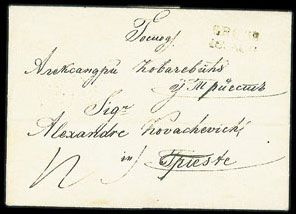 Господ.
Александру Ковачевићъ
у Трiестъ
Sigr
Alexandre Kovachevich
in Trieste